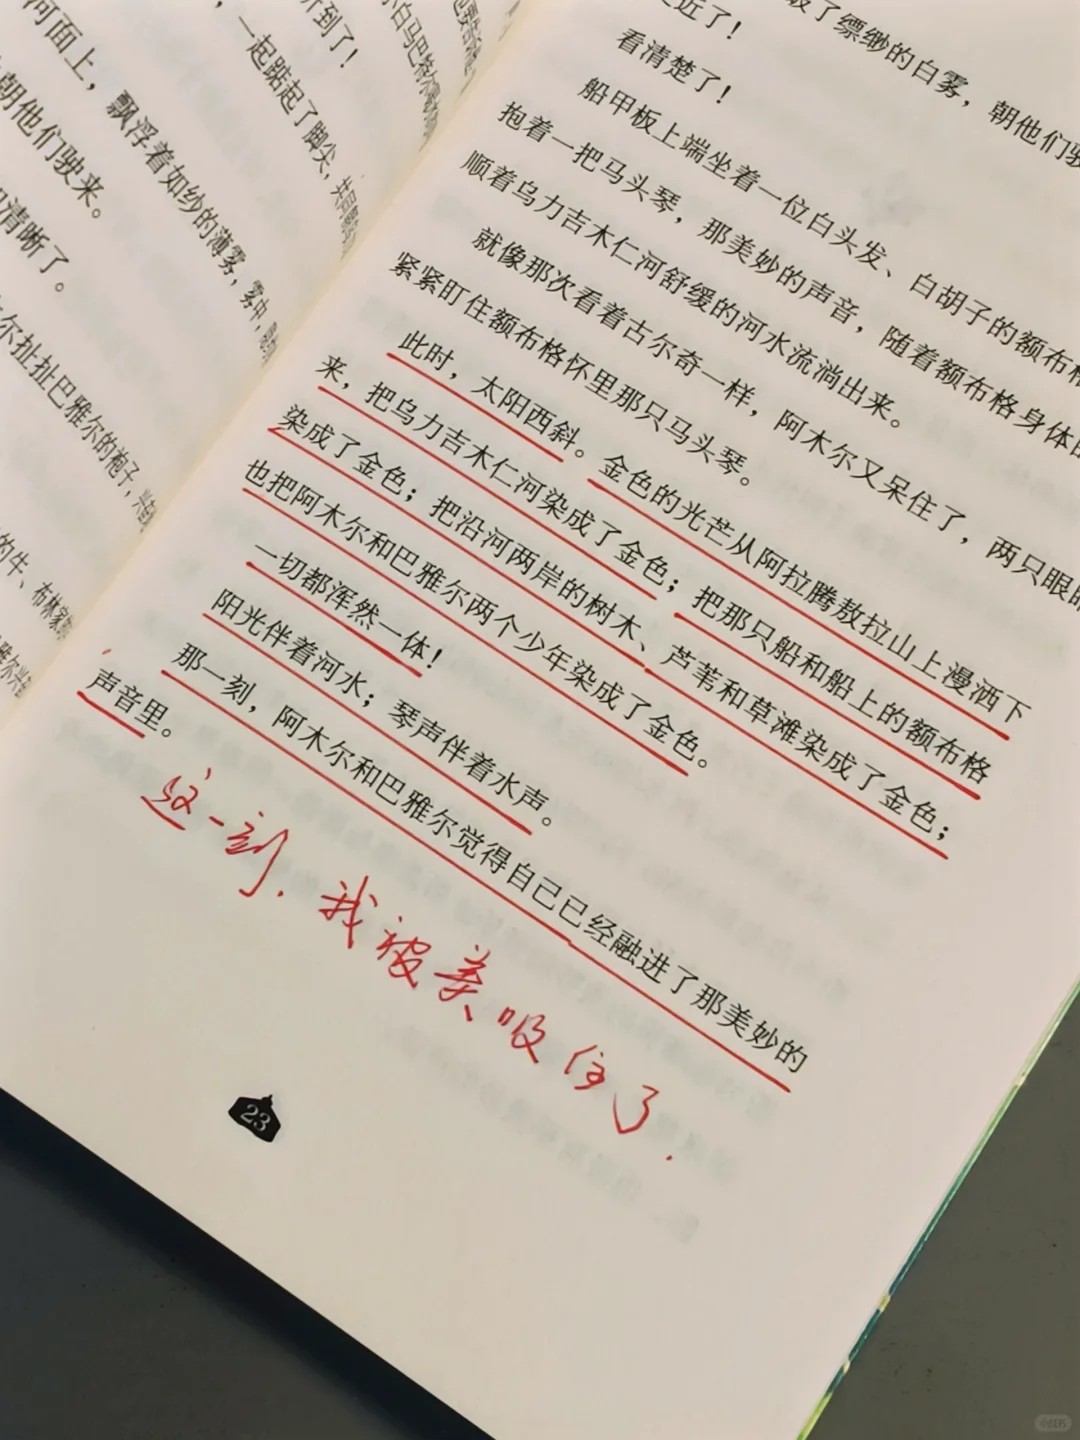 河面上，飘浮着如纱的薄雾，雾中，
朝他们驶来。
清晰了。
尔扯扯巴雅尔的袍子，
的牛、布林家
听到了！
一起踮起了脚尖，
了缥缈的白雾，朝他们驶
近了！
看清楚了！
船甲板上端坐着一位白头发、白胡子的额布格
抱着一把马头琴，那美妙的声音，随着额布格身体的
顺着乌力吉木仁河舒缓的河水流淌出来。
就像那次看着古尔奇一样，阿木尔又呆住了，两只眼睛
紧紧盯住额布格怀里那只马头琴。
此时，太阳西斜。金色的光芒从阿拉腾敖拉山上漫洒下
来，把乌力吉木仁河染成了金色；把那只船和船上的额布格
染成了金色；把沿河两岸的树木、芦苇和草滩染成了金色；
也把阿木尔和巴雅尔两个少年染成了金色。
一切都浑然一体！
阳光伴着河水；琴声伴着水声。
那一刻，阿木尔和巴雅尔觉得自己已经融进了那美妙的
声音里。
这一刻，我被美吸住了.
23
小红书